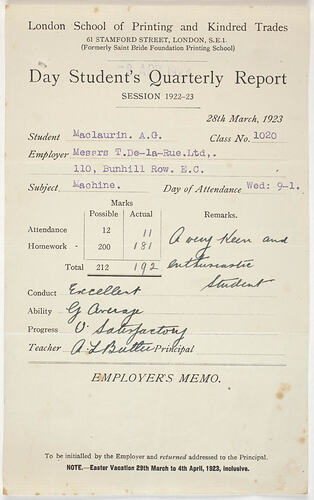 London School of Printing and Kindred Trades
61 STAMFORD STREET, LONDON, S.E.1.
(Formerly Saint Bride Foundation Printing School)
Day Student's Quarterly Report
SESSION 1922-23
28th March, 1923
Student Maclaurin. A.G. Class No. 1020
Employer Messrs T.De-la-Rue.Ltd,.
110, Bunhill Row. E.C.
Subject Machine. Day of Attendance Wed: 9-1.
Marks
Possible Actual Remarks.
Attendance 12 11
Homework - 200 181
Total 212 192
A very keen and
enthusiastic
Student
Conduct Excellent
Ability G Average
Progress V Satisfactory
Teacher A. L Butler Principal
EMPLOYER'S MEMO.
To be initialled by the Employer and returned addressed to the Principal.
NOTE.—Easter Vacation 29th March to 4th April, 1923, inclusive.